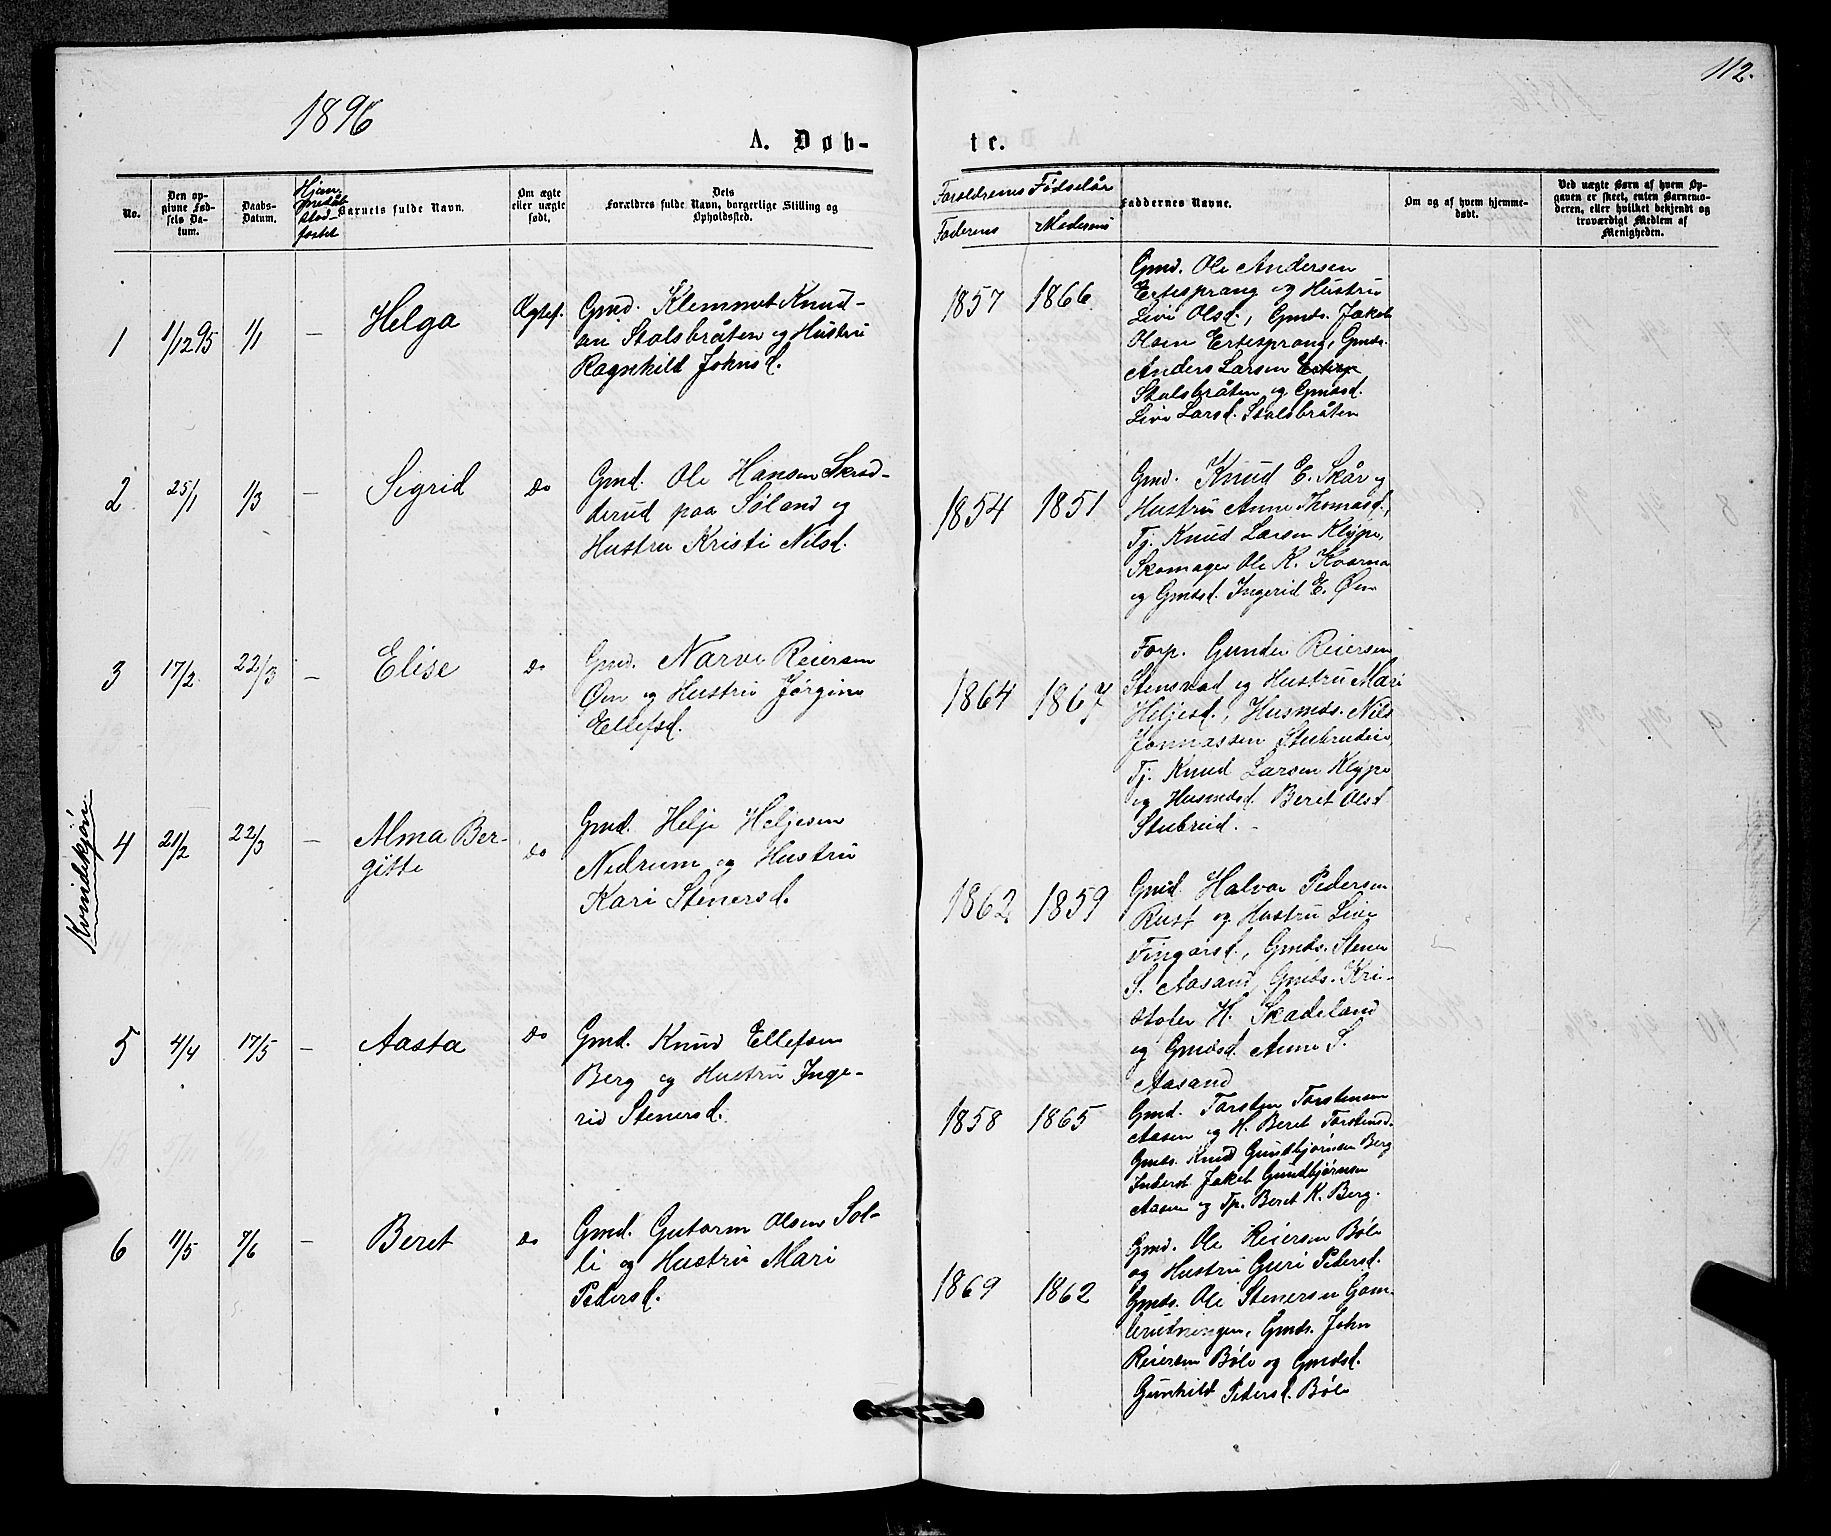 1896
112.
A. Døb-
te.
No.
Den op-
givne Fød-
sels Da-
tum.
Daabs-
Datum.
Barnets fulde Navn.
Om ægte
eller uægte
født.
Dets
Forældres fulde Navn, borgerlige Stilling og
Opholdssted.
Forældrenes Fødselår
Faderens
Moderens
Faddernes Navne.
Om og af hvem hjemme-
døbt.
Ved uægte Børn af hvem Op-
gaven er skeet, enten Barnemo-
deren, eller hvilket bekjendt og
troværdigt Medlem af
Menigheden.
Kvindekjøn.
1
1/12 95
1/1
—
Helga
Ægtef.
Gmd. Klemmet Knud-
sen Stalsbråten og Hustru
Ragnhild Johnsd.
1857
1866
Gmd. Ole Andersen
Ertesprang og Hustru
Livi Olsd., Gmds. Jakob
Olsen Ertesprang, Gmds.
Anders Larsen
Stalsbråten og Gmdsd.
Livi Larsd. Stalsbråten
2
25/1
1/3
—
Sigrid
Do
Gmd. Ole Hansen Skred-
derud paa Søland og
Hustru Kristi Nilsd.
1854
1851
Gmd. Knud E. Skår og
Hustru Anne Thomasd.,
Tj. Knud Larsen Klype,
Skomager Ole K. Kvarna
og Gmdsd. Ingerid E. Øen
3
17/2
22/3
—
Elise
Do
Gmd. Narve Reiersen
Øen og Hustru Jørgine
Ellefsd.
1864
1867
Forp. Gunder Reiersen
Stensrud og Hustru Mari
Heljesd., Husmds. Nils
Jonnassen Stubrudeie,
Tj. Knud Larsen Klype
og Husmdsd. Beret Olsd
Stubrud.
4
21/2
22/3
—
Alma Ber-
gitte
Do
Gmd. Helje Heljesen
Nedrum og Hustru
Kari Stenersd.
1862
1859
Gmd. Halvor Pedersen
Rust og Hustru Live
Fingarsd., Gmds. Stener
S. Aasand, Gmds. Kri-
stofer H. Skadeland
og Gmdsd. Anne S.
Aasand
5
4/4
17/5
—
Aasta
Do
Gmd. Knud Ellefsen
Berg og Hustru Inge-
rid Stenersd.
1858
1865
Gmd. Torsten Torstensen
Aasen og H. Beret Torstensd.
Gmds. Knud Gundbjørnsen Berg
Inderst Jakob Gundbjørnsen
Aasen og Tp. Beret K. Berg.
6
11/5
7/6
—
Beret
Do
Gmd. Gutorm Olsen Sol-
li og Hustru Mari
Pedersd.
1869
1862
Gmd. Ole Reiersen Bøle
og Hustru Guri Pedersd.
Gmds. Ole Stenersen Gam-
Gmds. John
Reiersen Bøle og Gmdsd.
Gunhild Pedersd. Bøle